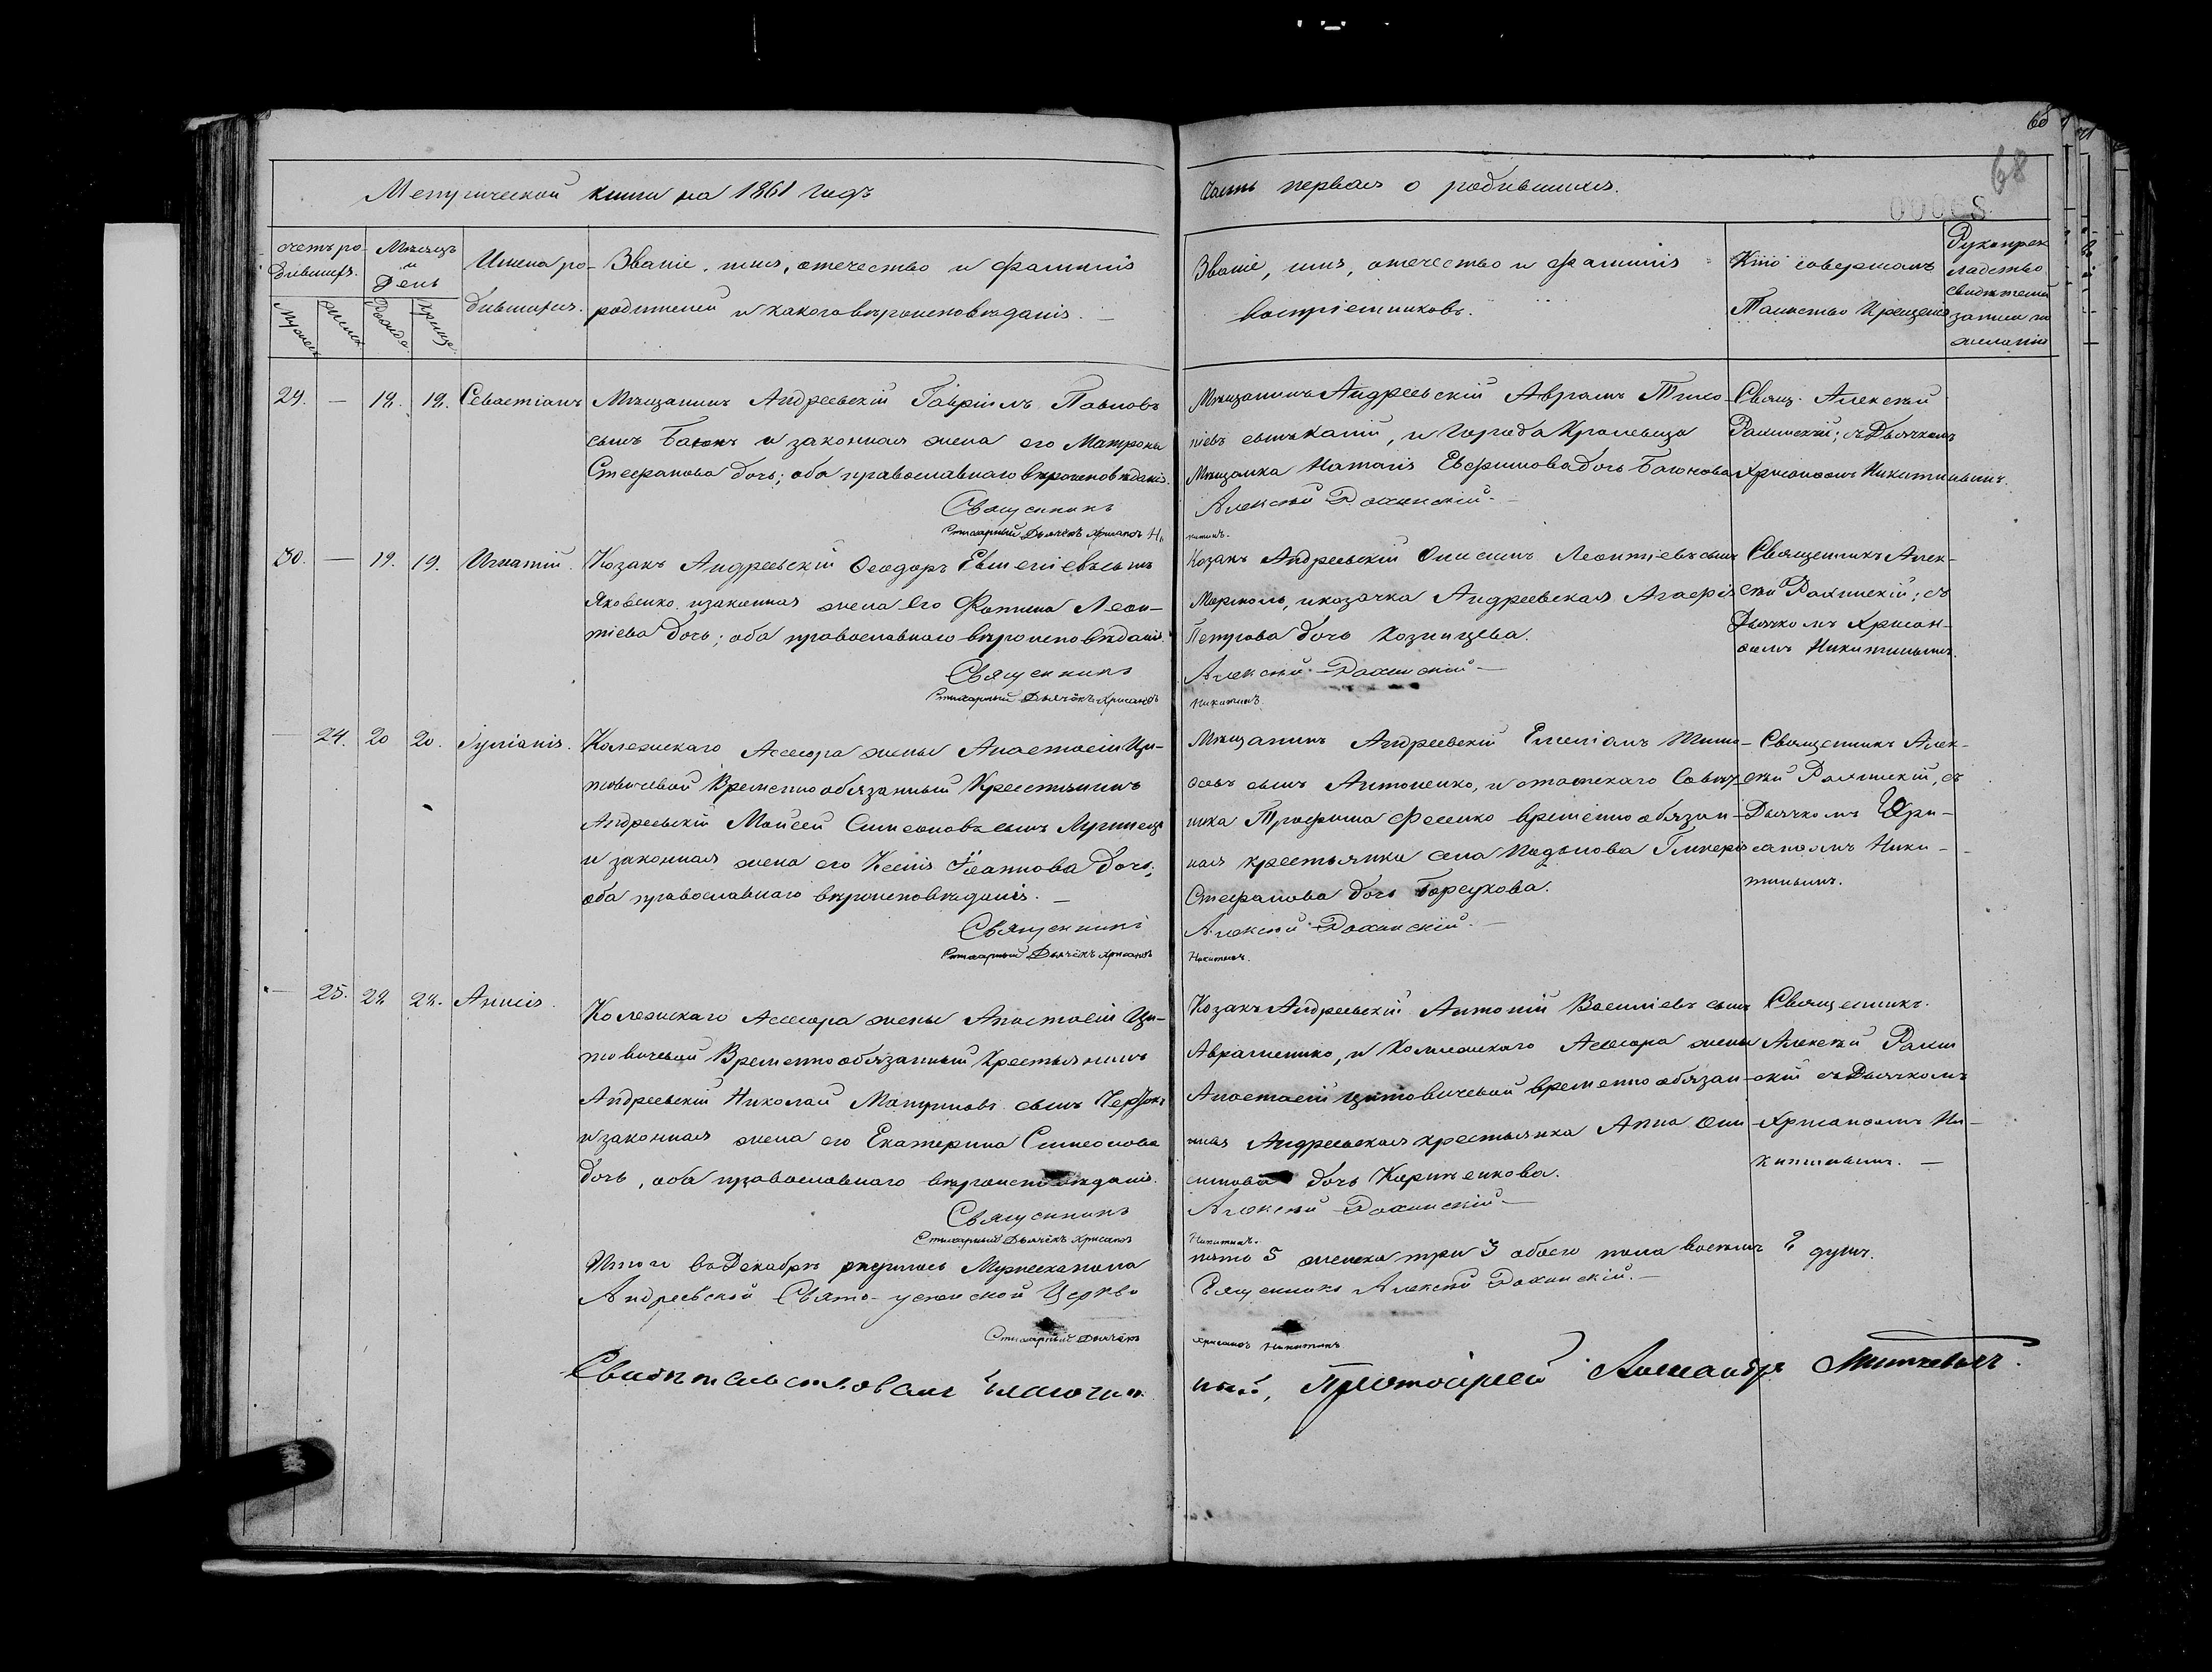 68
68
00068
Метрической книги на 1861 годъ
Часть первая о родившихся.
Счетъ ро-
дившихъ.
Мужеск
Женск
Мѣсяцъ
и
День
Рожде.
Креще.
Имена ро-
дившихся.
Званіе, имя, отечество и фамилія
родителей и какого вѣроисповѣданія. —
Званіе, имя, отечество и фамилія
воспріемниковъ.
Кто совершалъ
Таинство Крещенія
Рукоприк
ладство
свидѣтелей
записи по
желанію
29. — 18. 18. Севастіанъ
Мѣщанинъ Андреевскій Гавріилъ Павловъ
сынъ и законная жена его Матрона
Стефанова дочь; оба православнаго вѣроисповѣданія.
Священникъ
Стихарный Дьячёкъ Хрисанѳъ Ни
Мѣщанинъ Андреевскій Аврамъ Тимо-
ѳіевъ сынъ и Города Кролевца
Мѣщанка Наталія Евфимова дочь
Алексѣй
китинъ.
Свящ. Алексѣй
съ Дьячкомъ
Хрисанѳомъ Никитинымъ.
30. — 19. 19. Игнатій.
Козакъ Андреевскій Ѳеодоръ сынъ
Яковенко и законная жена его Фотина Леон-
тіева дочь; оба православнаго вѣроисповѣданія.
Священникъ
Стихарный Дьячёкъ Хрисанѳъ
Козакъ Андреевскій Онисимъ Леонтіевъ сынъ
и козачка Андреевская Агафія
Петрова дочь
Алексѣй
Никитинъ.
Священникъ Алек-
сѣй съ
Дьячкомъ Хрисан-
ѳомъ Никитинымъ.
— 24. 20 20. Іуліанія.
Колежскаго Асесора жены Анастасіи Ци-
товичевой Временно обязанный Крестьянинъ
Андреевскій Моисей Симеоновъ сынъ
и законная жена его Ксенія Іоаннова дочь;
оба православнаго вѣроисповѣданія. —
Священникъ
Стихарный Дьячёкъ Хрисанѳъ
Мѣщанинъ Андреевскій Емеліанъ Тимо-
ѳеевъ сынъ Антоненко, и статскаго Совѣт-
ника Трофима временно обязан-
ная крестьянка Гликерія
Стефанова дочь
Алексѣй
Никитинъ.
Священникъ Алек-
сѣй съ
Дьячкомъ Хри-
санѳомъ Ники-
тинымъ.
— 25. 28 28. Аннисія.
Колежскаго Асесора жены Анастасіи Ци-
товичевой Временно обязанный Крестьянинъ
Андреевскій Николай сынъ
и законная жена его Екатерина Симеонова
дочь, оба православнаго вѣроисповѣданія.
Священникъ
Стихарный Дьячёкъ Хрисанѳъ
Козакъ Андреевскій Антоній Василіевъ сынъ
Авраменко, и Колежскаго Асесора жены
Анастасіи Цитовичевой временно обязан-
ная Андреевская крестьянка Анна Они-
симова дочь
Алексѣй
Никитинъ.
Священникъ
Алексѣй
съ Дьячкомъ
Хрисанѳомъ Ни-
китинымъ. —
Итого въ Декабрѣ родилось Мужеска пола
пять 5 женска три 3 обоего пола восемь 8 душъ.
Андреевской Свято- Церкви
Священникъ Алексѣй
Стихарный Дьячёкъ
Хрисанѳъ Никитинъ
Свидѣтельствовалъ благочин
ный, Протоіерей Александръ